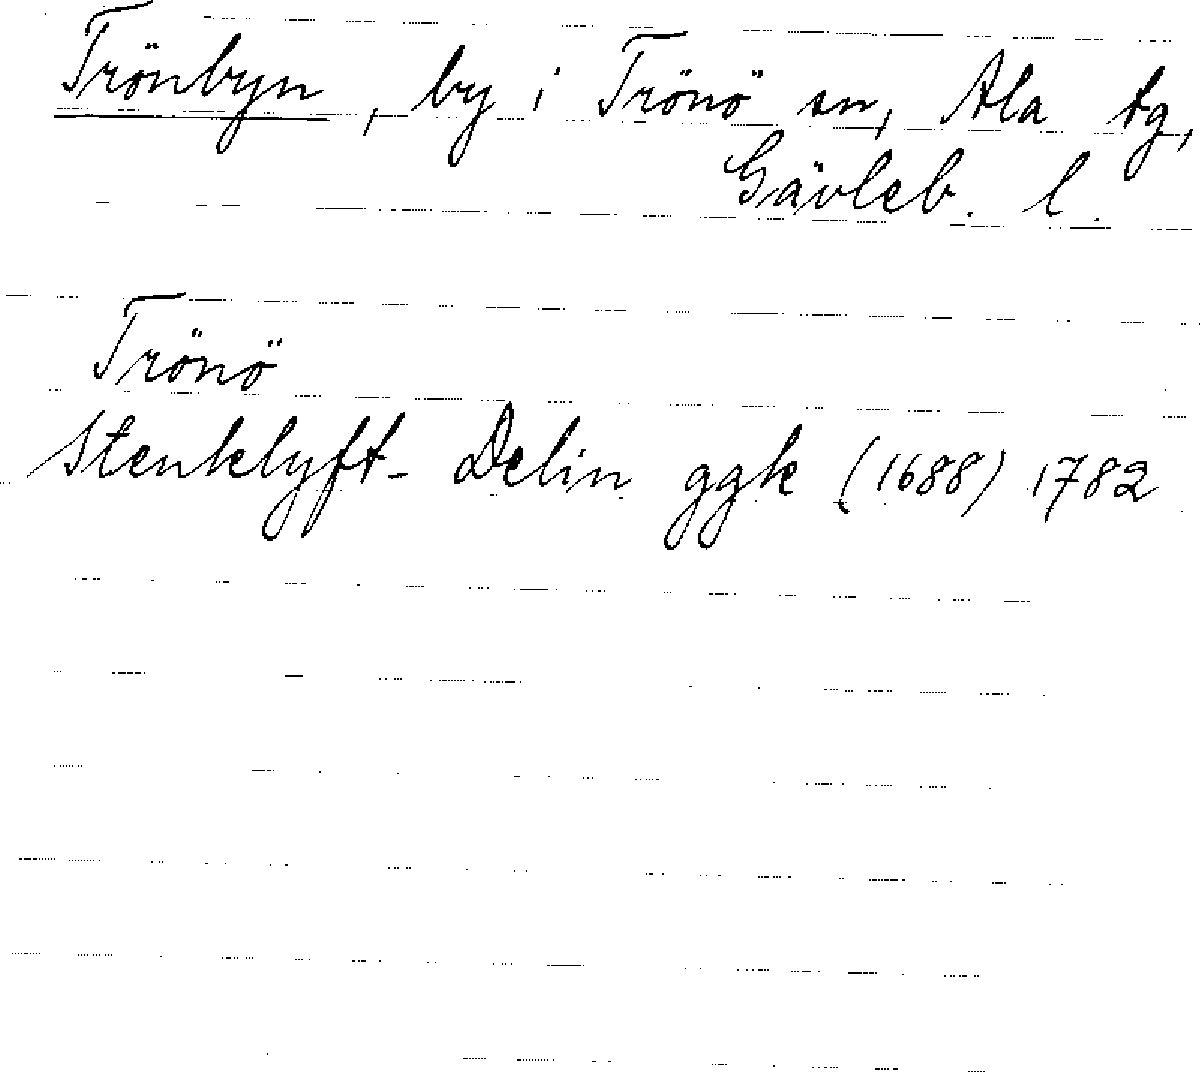 Trönbyn, by i Trönö sn, Ala tg,
Gävleb. l.
Trönö
Stenklyft- Delin ggk (1688) 1782